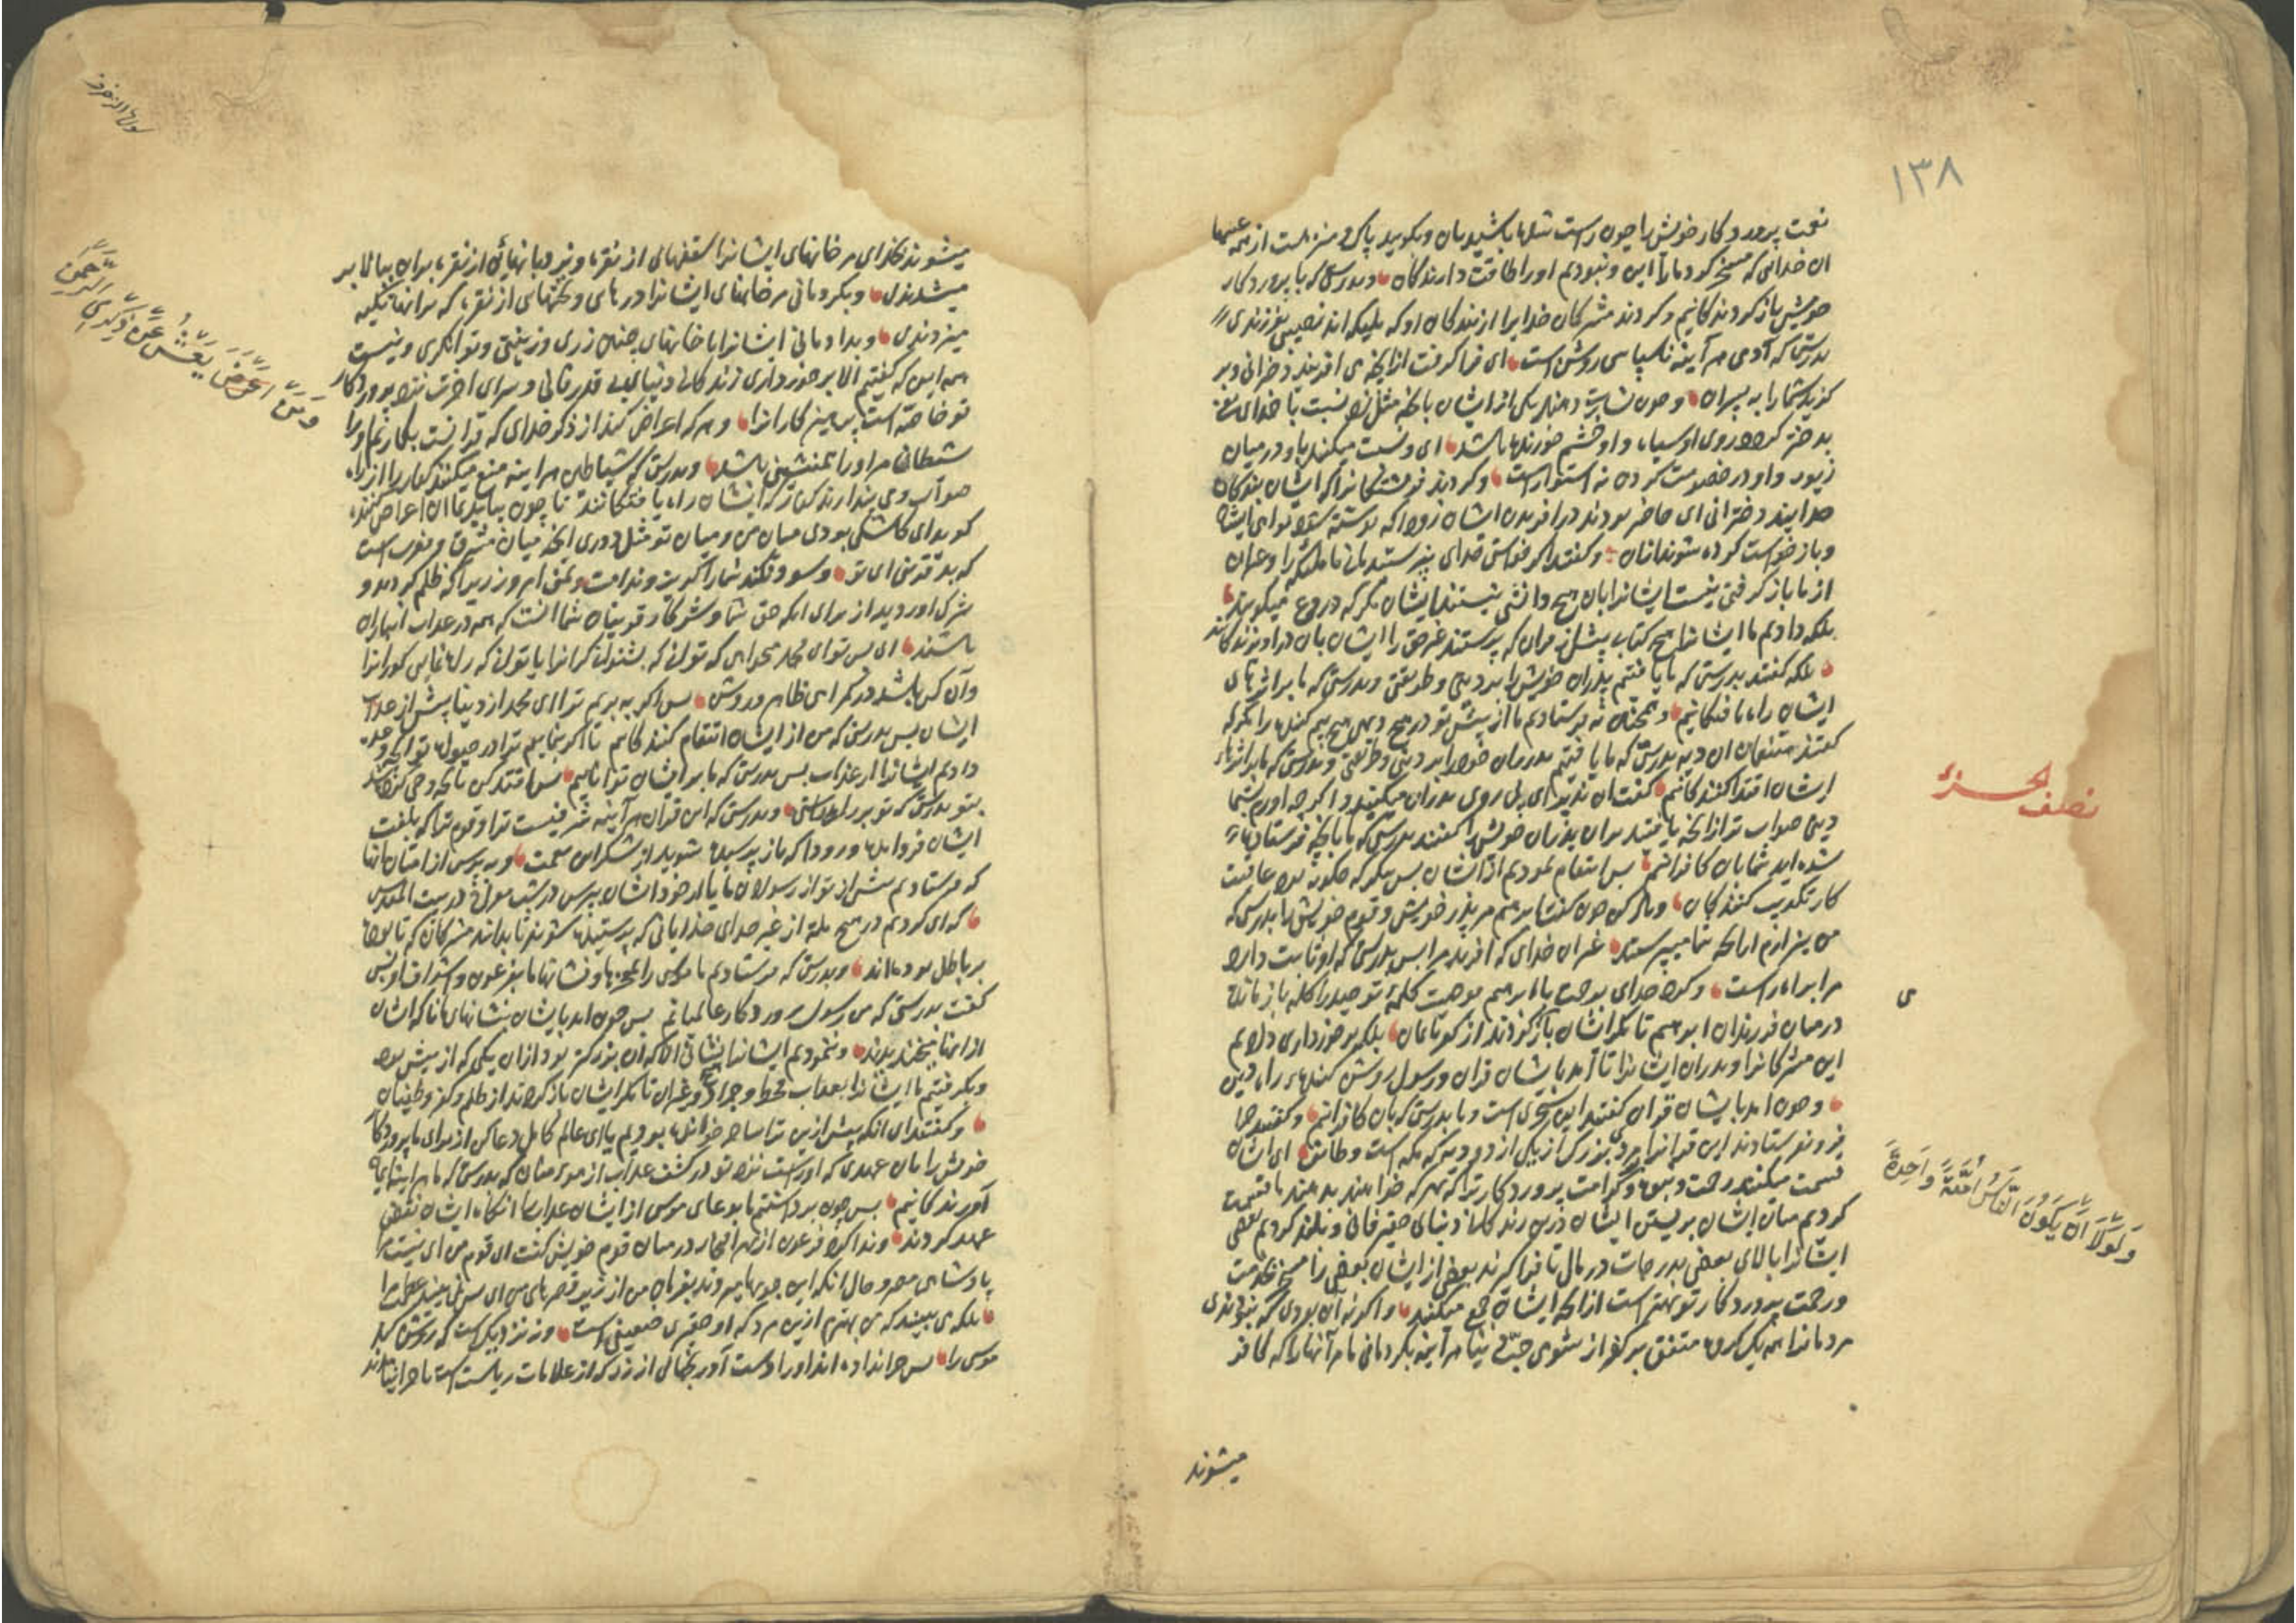 ۱۳۸
نعمت پرورد کار خویش را چون راست شدها باشید بان و بکویید پاک و منزهست از همه عیبها
ان خدائی که مسخر کرد مارا این و نبودیم اورا طاقت دارندکان و بدرستی که با پروردکار
خویش باز کردندکانیم و کردند مشرکان خدایرا از بندکان او که ملیکه اند نصیبی فرزندی
بدرستی که آدمی هر آینه ناسپاسی روشن است ای فرا کرفت از انچه می افریند دخترانی و بر
کزید شمارا به پسران و چون بشارت دهند یکی از ایشان بانچه مثل زد نسبت با خدای
بدختر کردد روی او سیاه و او خشم خورنده باشد ای و نسبت میکند باو در میان
زیور و او در خصومت کردن نه استوارست و کردند فرشتکانرا که ایشان بندکان
خدایند دخترانی ای حاضر بودند در افریدن ایشان زود که نوشته شود کواهی ایشان
و باز خواست کرده شوند ازان و کفتند اکر خواستی خدای نپرستیدمانی ما ملیکه را و غیر ان
از ما باز کرفتی نیست ایشانرا بان هیچ دانشی نیستند ایشان مکر که دروغ میکویند
بلکه دادیم ما ایشانرا هیچ کتاب پیش از قران که پرستند غیر حق را ایشان بان در اویزندکانند
بلکه کفتند بدرستی که ما یافتیم پدران خویش را بر دینی و طریقتی و بدرستی که ما بر اثرهای
ایشان راه یافتکانیم و همچنین نه فرستادیم ما از پیش تو در هیچ دهی هیچ بیم کننده را مکر که
کفتند متنعمان ان دیه بدرستی که ما یافتیم پدران خود را بر دینی و طریقتی و بدرستی که ما بر اثرهاء
ایشان اقتدا کنندکانیم کفت ان نذیر ای پی روی پدران میکنید و اکر چه اورم بشما
دینی صواب تر از انچه یافتید بران پدران خویش را کفتند بدرستی که ما بانچه فرستاده
شده اید شما بان کافرانیم پس انتقام نمودیم از ایشان پس بنکر که چکونه بود عاقبت
کار تکذیب کنندکان و یاد کن چون کفت ابرهیم مر پدر خویش و قوم خویش را بدرستی که
من بیزارم از انچه شما میپرستید غیر ان خدای که افرید مرا پس بدرستی که او ثابت دارد
مرا براه راست و کرد خدای یا ابرهیم کلمه توحید را کلمه باز مانده
در میان فرزندان ابرهیم تا مکر ایشان باز کردند از کفر بایمان بلکه برخورداری دادیم
این مشرکانرا و پدران ایشانرا تا آمد بایشان قران و رسول روشن کننده راه دین
و چون امد بایشان قران کفتند این سحری است و ما بدرستی که بان کافرانیم و کفتند چرا
فرو نفرستادند این قرانرا بر مردی بزرک از یکی از دو دیه که مکه است و طایف ای ایشان
قسمت میکنند رحمت و نبوت و کرامت پروردکار ترا که بهر که خواهند بدهند ما قسمت
کردیم میان ایشان بزیستن ایشان درین زندکانی دنیای حقیر فانی و بلند کردیم بعضی
ایشانرا بالای بعضی بدرجات در مال تا فرا کیرند بعضی از ایشان بعضی را مسخر بخدمت
و رحمت پروردکار تو بهتر است از انچه ایشان جمع میکنند و اکر نه آن بودی که بنبودندی
مردمانرا همه یک کروه متفق بر کفر از شومی حبّ دنیا هر آینه بکردمانی ما مر آنهارا که کافر
میشوند
نصف الحزب
ی
وَلَوْلَا أَن يَكُونَ النَّاسُ أُمَّةً وَاحِدَةً
میشوند بخدای مر خانهای ایشانرا سقفهای از نقره و نردبانهائی از نقره بران ببالا بر
میشدندی و بکردمانی مر خانهای ایشانرا درهای و تختهای از نقره که برانها تکیه
میزدندی و بدادمانی ایشانرا با خانهای چنین زری و زینتی و توانکری و نیست
همه این که کفتیم الا برخورداری زندکانی دنیای بی قدر فانی و سرای اخرت نزد پروردکار
تو خاصه است پرهیزکارانرا و هر که اعراض کند از ذکر خدای که قرانست بکماریم او را
شیطانی مر او را همنشینی باشد و بدرستی که شیاطین هر اینه منع میکنند کفار را از راه
صواب و می پندارند کفار که ایشان راه یافتکانند تا چون بیاید بما ان اعراض کننده
کوید ای کاشکی بودی میان من و میان تو مثل دوری انچه میان مشرق و مغربست
که بد قرینی ای تو و سود نکند شمارا کویند ندامت و تمنی امروز زیرا که ظلم کردید و
شرک اوردید از برای انکه حق شما و شرکاء و قرینان شما انست که همه در عذاب انبازان
باشند ای پس تو ای محمد میخواهی که توانی که بشنوانی کرانرا یا توانی که راه نمایی کورانرا
وآن کس باشد در کمراهی ظاهر و روشن پس اکر به بریم ترا ای محمد از دنیا پیش از عذاب
ایشان پس بدرستی که من از ایشان انتقام کنندکانیم تا اکر بنماییم ترا در حیوة تو انچه وعده
دادیم ایشانرا از عذاب پس بدرستی که ما بر ایشان تواناییم پس اقتدا کن بانچه وحی کرده شد
بتو بدرستی که تو بر راه راستی و بدرستی که این قران هر آینه شرفیست ترا و قوم ترا که بلغت
ایشان فرو امده و زودا که باز پرسیده شوید از شکر این نعمت و به پرس از امتان انها
که فرستادیم پیش از تو از رسولان ما یا از خود ایشان بپرس در شب معراج در بیت المقدس
که ای کردیم در هیچ ملة از غیر خدای خدایانی که پرستیده شوند تا بدانند مشرکان که تا بوده
بر باطل بوده اند و بدرستی که فرستادیم ما موسی را بمعجزها و نشانها ما بفرعون و اشراف او پس
کفت بدرستی که من رسول پروردکار عالمیانم پس چون امد بایشان بنشانهای ما ناکه ایشان
از انها بخندیدند و ننمودیم ایشانرا نشانی الا که ان بزرکتر بود از ان یکی که از پیش بود
و بکرفتیم ما ایشانرا بعذاب قحط و جراد و غیر ان تا مکر ایشان باز کردند از ظلم و کفر و طغیان
و کفتند ای انکه پیش ازین ترا ساحر خوانده بودیم یا ای عالم کامل دعا کن از برای ما پروردکار
خویش را بان عهدی که اوراست نزد تو در کشف عذاب از مومنان که بدرستی که ما هر اینه ایمان
آورندکانیم پس چون برداشتیم ما بدعای موسی از ایشان عذاب را انکاه ایشان نقض
عهد کردند و ندا کرد فرعون از بهر افتخار در میان قوم خویش کفت ای قوم من ای نیست مرا
پادشاهی مصر و حال انکه این جویها میروند بفرمان من از زیر قصرهای من ای پس نمی بینید عظمت مرا
بلکه می بینید که من بهترم ازین مرد که او حقیری ضعیفی است و نه نزدیک است که روشن کند
موسی را پس چرا نداده اند اورا دست آورنجهائی از زر که از علامات ریاست است یا چرا نیامده اند
وَمَن اَعْرَضَ يَعْشُ عَن ذِكْرِ الرَّحْمٰنِ